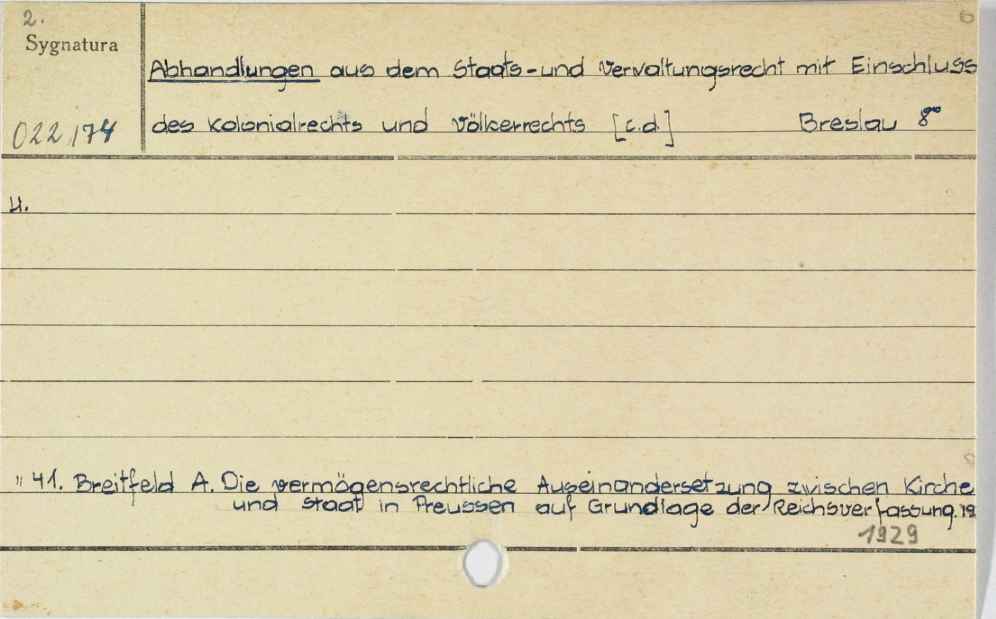 2.
Sygnatura
022174
Abhandlungen aus dem Staats-und Verwaltungsrecht mit Einschluss
des Kolonialrechts und Völkerrechts [c.d.] Breslau 8°°
H.
" 41. Breitfeld A. Die vermögensrechtliche Auseinandersetzung zwischen Kirche
und Staat in Preussen auf Grundlage der Reichsverfassung. 19
1929